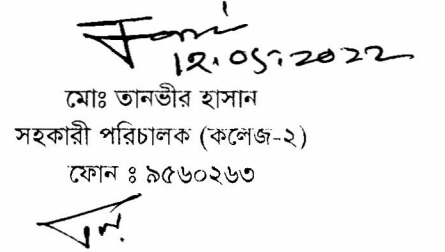 12.05.2022
মোঃ তানভীর হাসান
সহকারী পরিচালক (কলেজ-২)
ফোন ঃ ৯৫৬০২৬৩